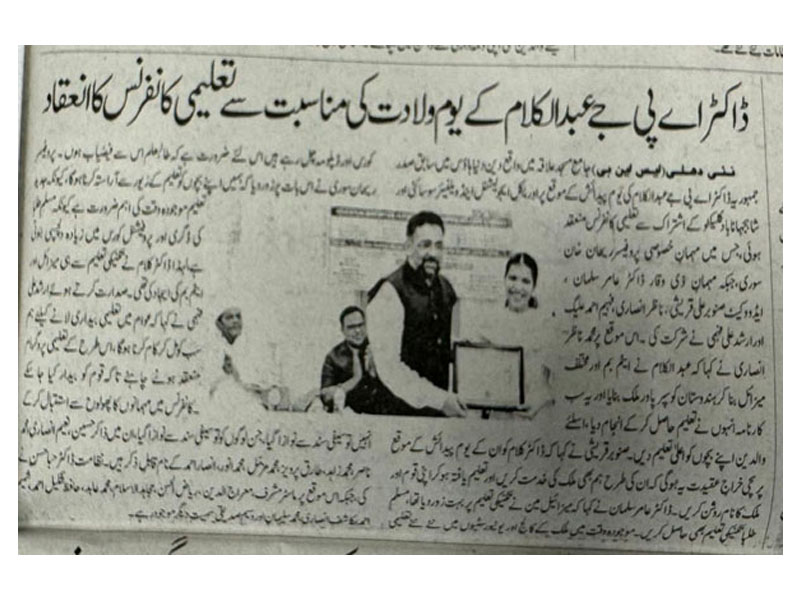 ڈاکٹر اے پی جے عبدالکلام کے یوم ولادت کی مناسبت سے تعلیمی کانفرنس کا انعقاد
نئی دهلی (ایس این بی) جامع مسجد علاقہ میں واقع دین دنیا ہاؤس میں سابق صدر
جمہوریہ ڈاکٹر اے پی جے عبدالکلام کی یوم پیدائش کے موقع پر اور یکل ایجوکیشنل اینڈ ویلفیئر سوسائٹی اور
شاہجہاناباد کے اشتراک سے تعلیمی کانفرنس منعقد
ہوئی، جس میں مہمان خصوصی پروفیسر ریحان خان
سوری، جبکہ مہمان ذی وقار ڈاکٹر عامر سلمان،
ایڈووکیٹ صنوبر علی قریشی، ناظر انصاری، فہیم احمد ملیک
اور ارشد علی فہمی نے شرکت کی۔ اس موقع پر محمد ناظر
انصاری نے کہا کہ عبدالکلام نے ایٹم بم اور مختلف
میزائل بنا کر ہندوستان کو سپر پاور ملک بنایا اور یہ سب
کارنامہ انہوں نے تعلیم حاصل کر کے انجام دیا، اسلئے
والدین اپنے بچوں کو اعلیٰ تعلیم دیں۔ صنوبر قریشی نے کہا کہ ڈاکٹر کلام کو ان کے یوم پیدائش کے موقع
پر سچی خراج عقیدت یہ ہوگی کہ ان کی طرح ہم بھی ملک کی خدمت کریں اور تعلیم یافتہ ہو کر اپنی قوم اور
ملک کا نام روشن کریں۔ ڈاکٹر عامر سلمان نے کہا کہ میزائل مین نے تکنیکی تعلیم پر بہت زور دیا تھا، مسلم
طلبا تکنیکی تعلیم بھی حاصل کریں۔ موجودہ وقت میں ملک کے کالج اور یونیورسٹیوں میں نئے نئے تعلیمی
کورس اور ڈپلومہ چل رہے ہیں اس لئے ضرورت ہے کہ طالبعلم اس سے فیضیاب ہوں۔ پروفیسر
ریحان سوری نے اس بات پر زور دیا کہ ہمیں اپنے بچوں کو تعلیم کے زیور سے آراستہ کرنا ہوگا، کیونکہ جدید
تعلیم موجودہ وقت کی اہم ضرورت ہے کیونکہ مسلم طلبا
کی ڈگری اور پروفیشنل کورس میں زیادہ دلچسپی ہوئی
ہے، لہٰذا ڈاکٹر کلام نے تکنیکی تعلیم سے ہی میزائل اور
ایٹم بم کی ایجاد کی تھی۔ صدارت کرتے ہوئے ارشد علی
فہمی نے کہا کہ عوام میں تعلیمی بیداری لانے کیلئے ہم
سب کو مل کر کام کرنا ہوگا، اس طرح کے تعلیمی پروگرام
منعقد ہونے چاہئے تاکہ قوم کو بیدار کیا جا سکے
۔ کانفرنس میں مہمانوں کا پھولوں سے استقبال کر کے
انہیں توصیفی سند سے نوازا گیا، جن لوگوں کو توصیفی سند سے نوازا گیا، ان میں ڈاکٹر حسین، نعیم انصاری، محمد
ناصر، محمد زاہد، طارق پرویز، محمد مزمل، محمد انور، انصار احمد کے نام قابل ذکر ہیں۔ نظامت ڈاکٹر حنا حسن نے
کی، جبکہ اس موقع پر ماسٹر مشرف، معراج الدین، ریاض الحسن، مجاہد الاسلام، محمد عابد، حافظ شکیل احمد، شمیم
احمد، کاشف انصاری، محمد سلیمان اور وسیم صدیقی سمیت دیگر موجود رہے۔